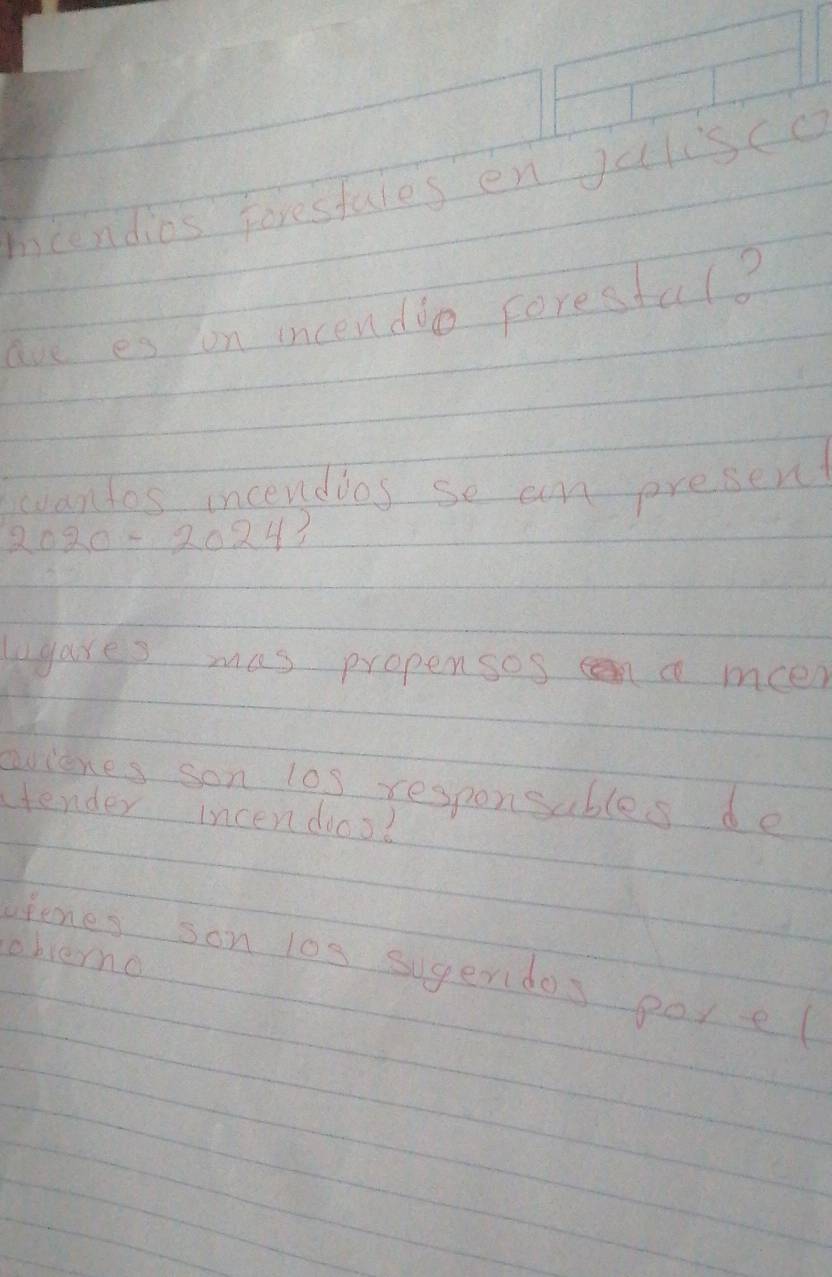 incendios forestales en jalisco
Que es un incendio forestal?
cuantos incendios se an present
2020 - 2024?
lugares mas propensos a incen
quienes son los responsables de
tender incendios?
uienes son los sugeridos por el
obierno